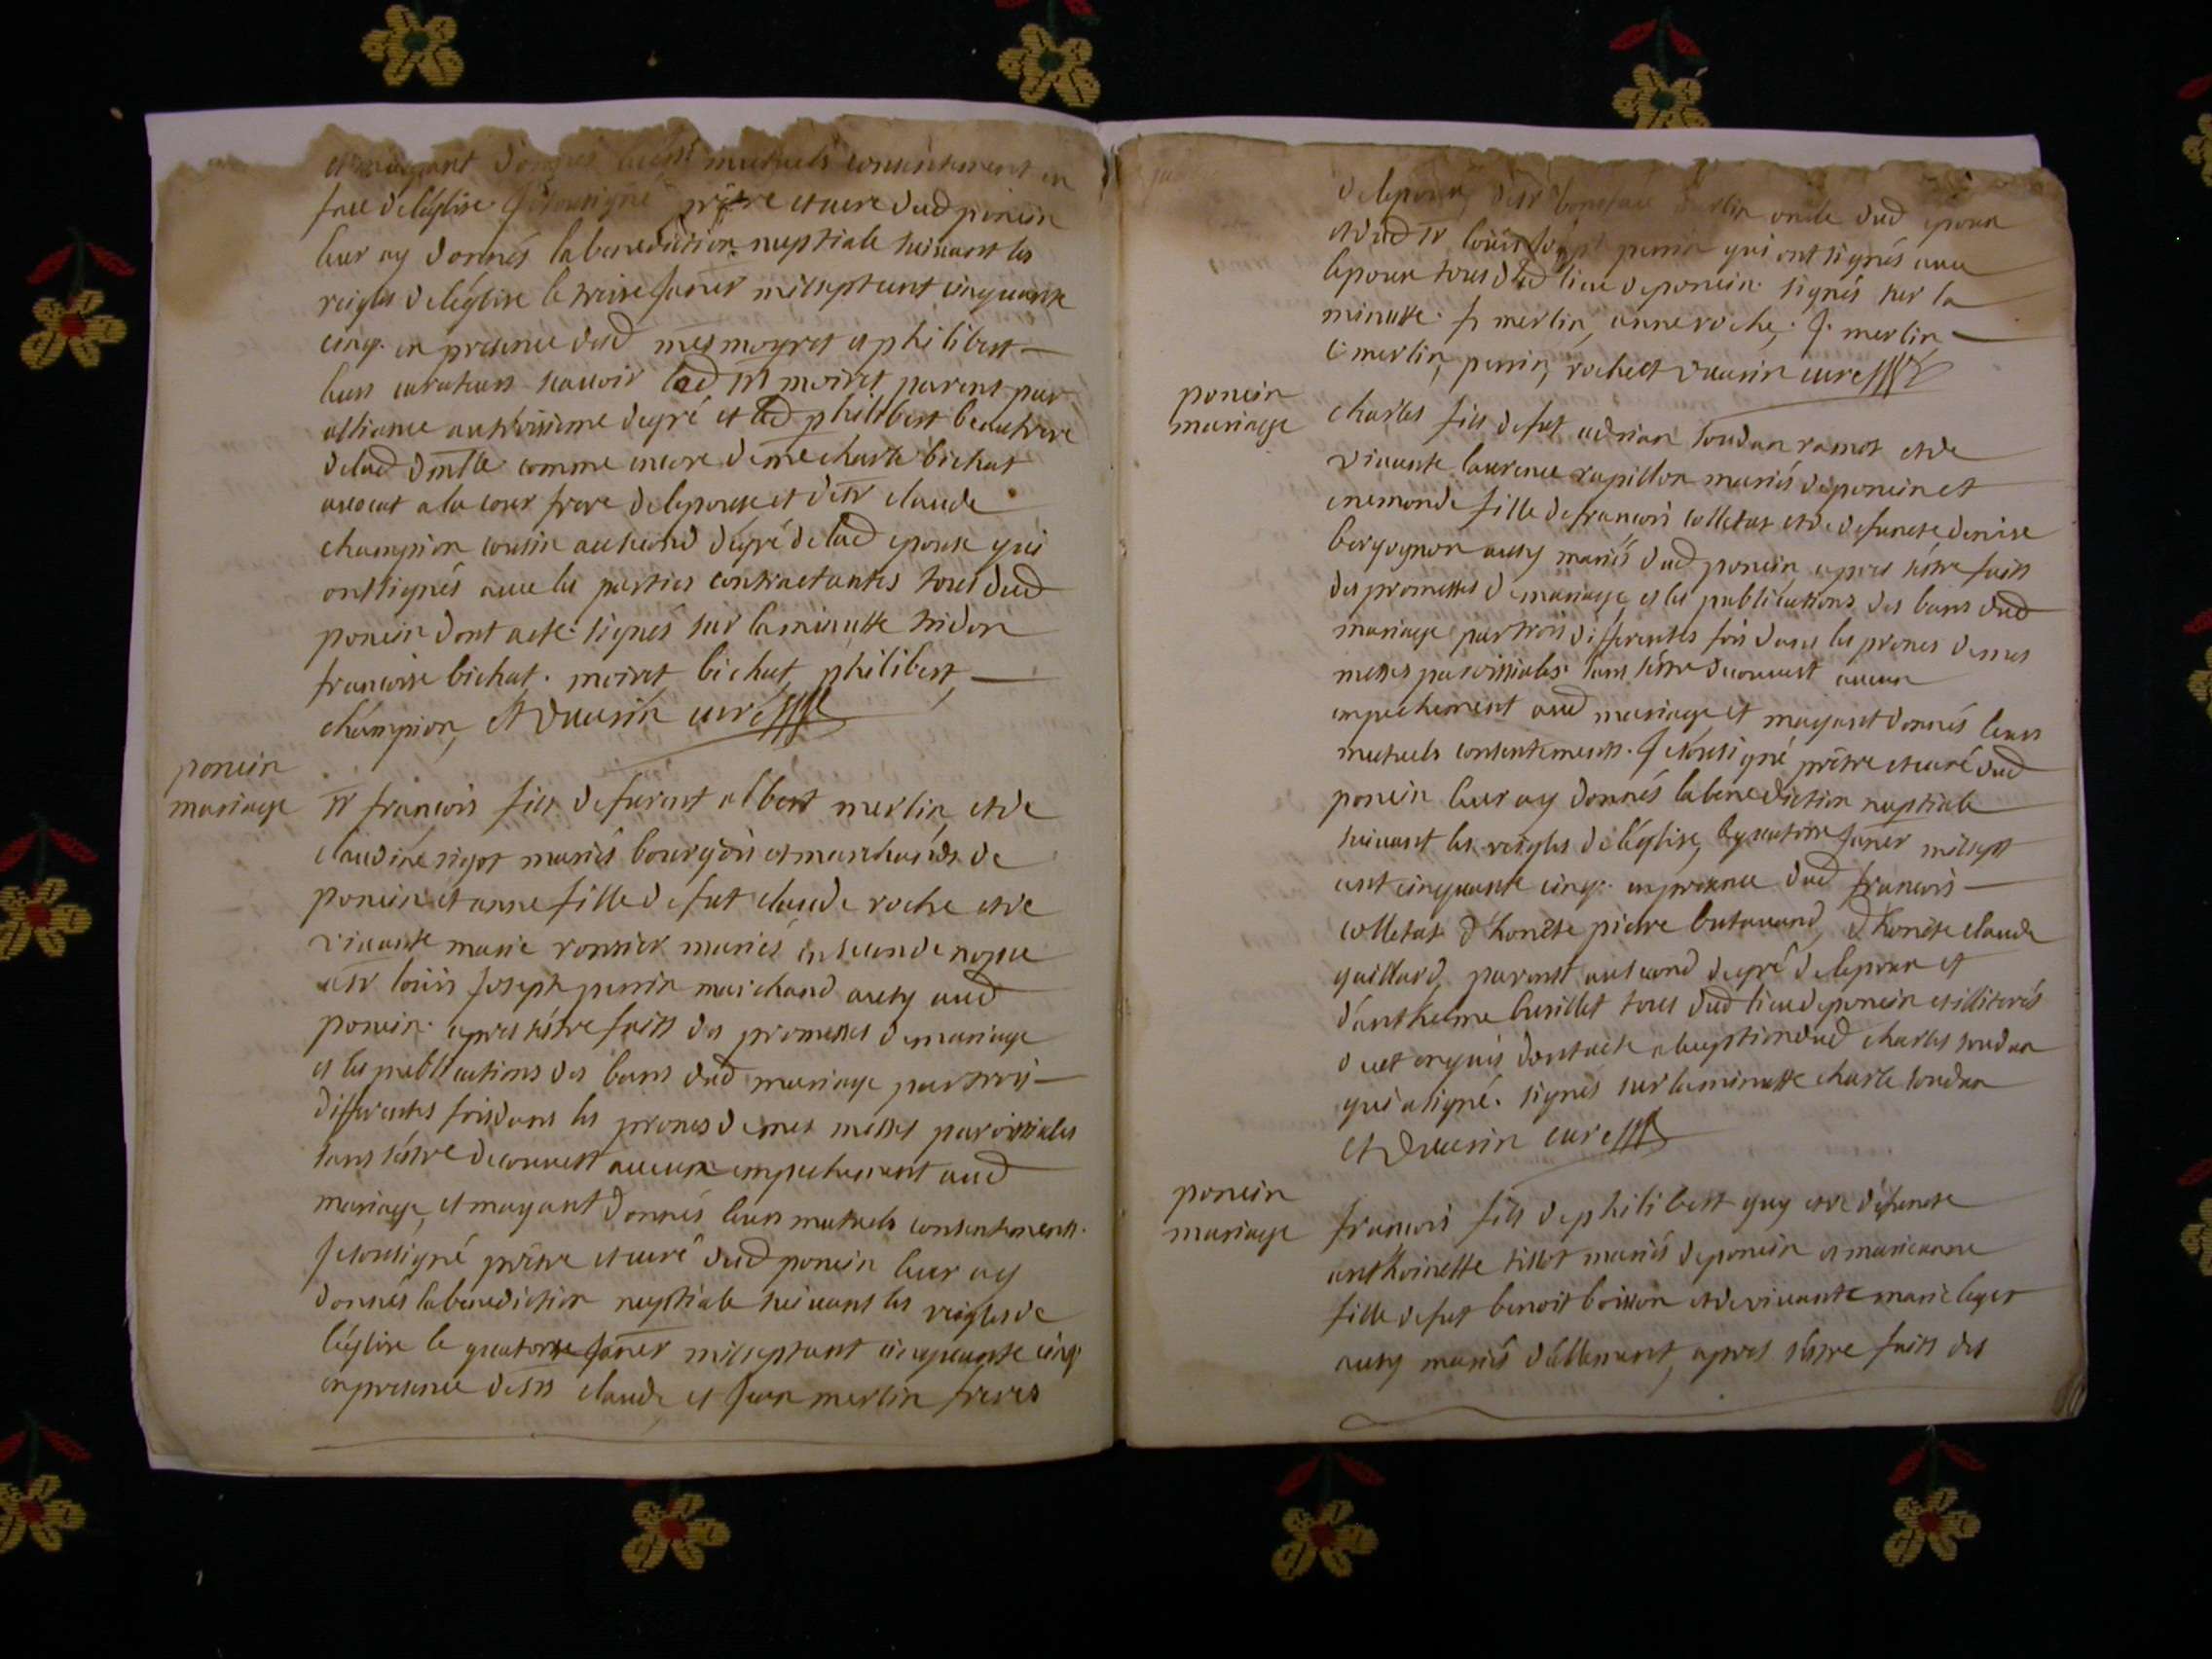 et mayant donnés leurs mutuels consentement en
face de léglise. Je soussigné prêtre et curé dud poncin
leur ay donnés la benediction nuptiale suivant les
reigles de léglise le treize janer mil sept cent cinquante
cinq. en presence dud mes moyret et philibert
leurs curateurs scauoir led mr moiret parent par
alliance au troisieme degré et led philibert beaufrere
de lad dmlle comme encore de me charle bichat
auocat a la cour frere de lepouse et de sr claude
champion cousin au second dégré de lad epouse qui
ont signés auec les parties contractantes tous dud
poncin dont acte. signés sur la minutte tridon
francoise bichat. moiret, bichat, philibert,
champion, et duuerin curé
poncin
mariage
sr francois fils de furent albert merlin, et de
claudine sigot mariés bourgois et marchands de
poncin et anne fille de fut claude roche et de
viuante marie mariés en seconde nopce
a sr loüis joseph perrin marchand aussy aud
poncin. apres sêtre faits des promesses de mariage
et les publications des bans dud mariage par trois
differentes fois dans les prones de mes messes paroissiales
sans sêtre decouuert aucun empechement aud
mariage, et mayant donnés leurs mutuels consentements.
Je soussigné prêtre et curé dud poncin leur ay
donnés la benediction nuptiale suiuans les reigles de
léglise le quatorse janer mil sept cent cinquante cinq
en presence de srs claude et jean merlin freres
de lepoux, de sr merlin oncle dud epoux
et dud sr loüis joseph perrin qui ont signés auec
lepoux tous dud lieu de poncin. signés sur la
minutte. f. merlin, anne roche, j. merlin,
c merlin, perrin, roche et duuerin curé
poncin
mariage
charles fils de fut adrian soudan ramot et de
viuante laurence rapillon mariés de poncin et
enemonde fille de francois colletas et de defuncte denise
bergognon aussy mariés dud poncin, apres sêtre faits
des promesses de mariage, et les publications des bans dud
mariage par trois differentes fois dans les prones de mes
messes paroissiales. sans sêtre decouuert aucun
empechement aud mariage et mayant donnés leurs
mutuels consentements. Je soussigné prêtre et curé dud
poncin leur ay donnés la benediction nuptiale
suiuant les reigles de léglise, le quatorse janer mil sept
cent cinquante cinq. en presence dud francois
colletas d'honête pierre butauand, d'honête claude
gaillard, parent au second degré de lepoux et
d'anthelme busillet tous dud lieu de poncin et illiterés
de ce enquis dont acte a lexeption dud charles soudan
qui a signé. signés sur la minutte charle soudan
et duuerin curé
poncin
mariage
francois fils de philibert guy et de défuncte
anthoinette tissot mariés de poncin et marie anne
fille de fut benoit boisson et de viuante marie leger
aussy mariés d'allement, apres sêtre faits des